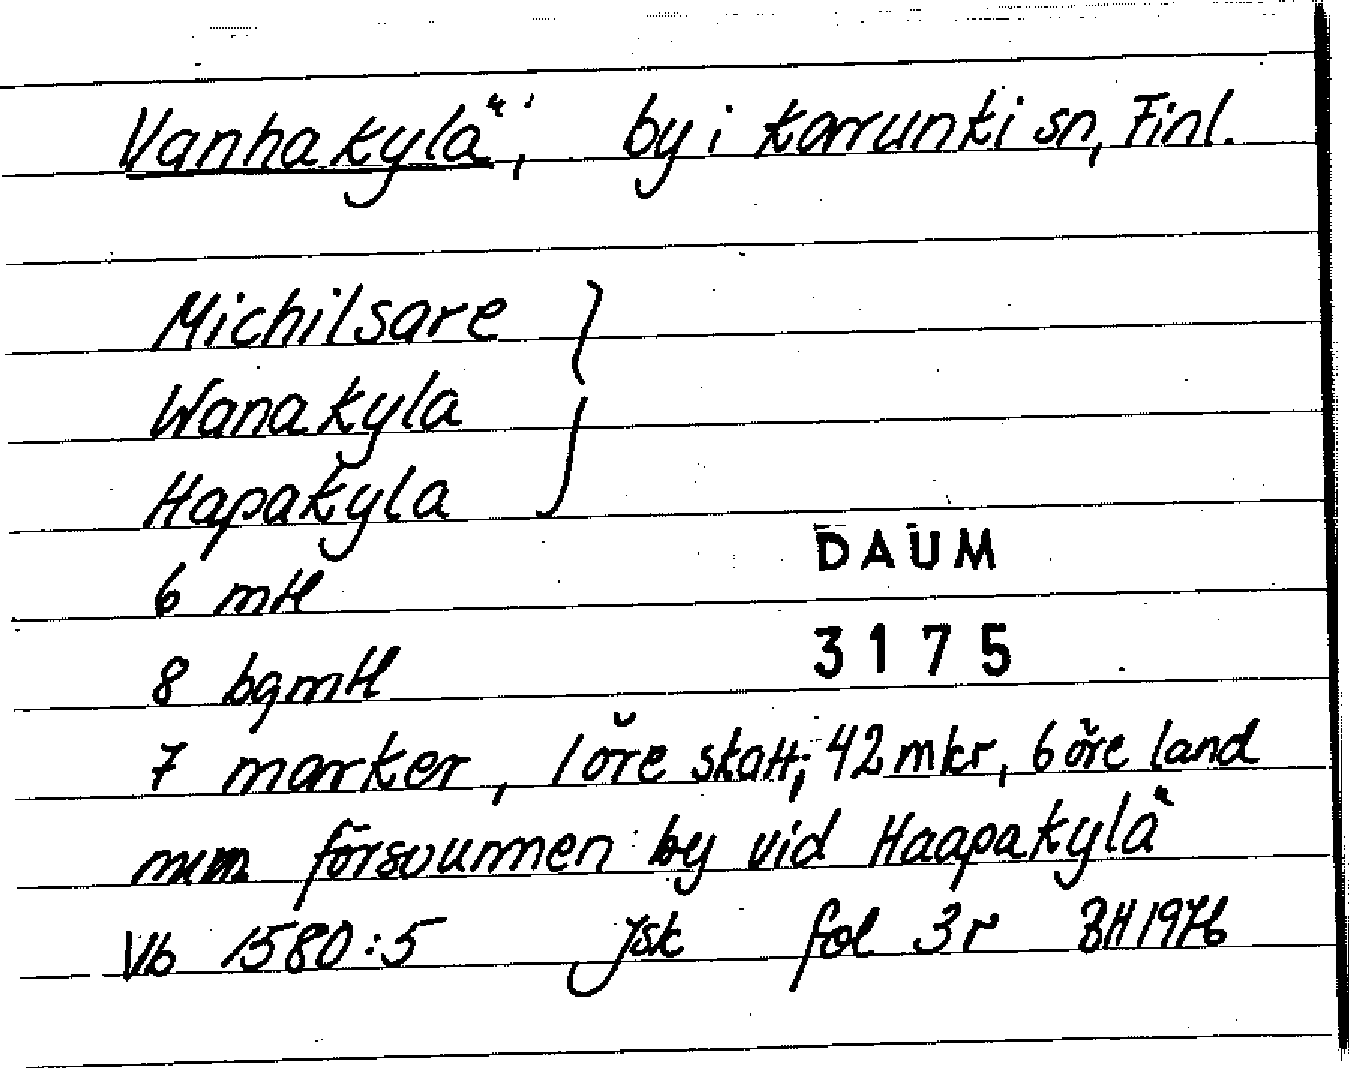 Vanhakylä, by i Karunki sn, Finl.
Michilsare
Wanakyla
Hapakyla
6 mtl
DAUM
8 bgmtl
3175
7 marker, 1 öre skatt; 42 mkr, 6 öre land
num försvunnen by vid Haapakylä
Vb 1580:5 Jsk fol 3r BH 1976